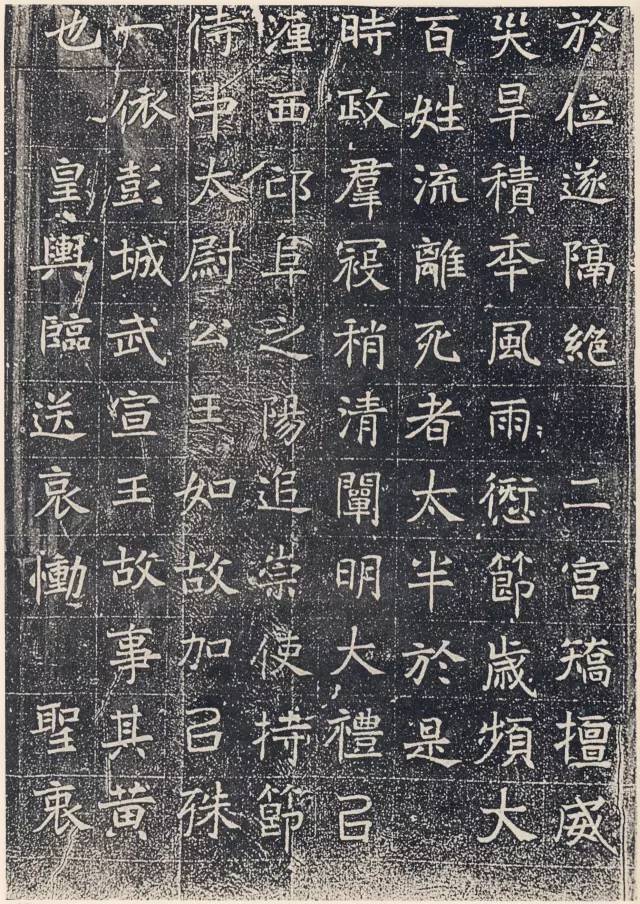 於位遂隔絶　二宮矯擅威
災旱積秊風雨愆節歲頻大
百姓流離死者太半於是
時政羣寇稍清闡明大禮㠯
瀍西邙阜之陽追崇使持節
侍中太尉公王如故加㠯殊
一依彭城武宣王故事其黃
也　皇輿臨送哀慟　聖衷